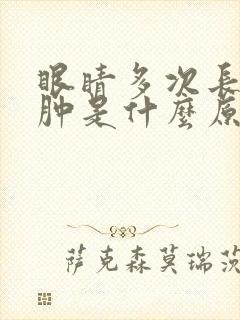 眼睛多次長
肿是什麼原
萨克森莫瑞茨